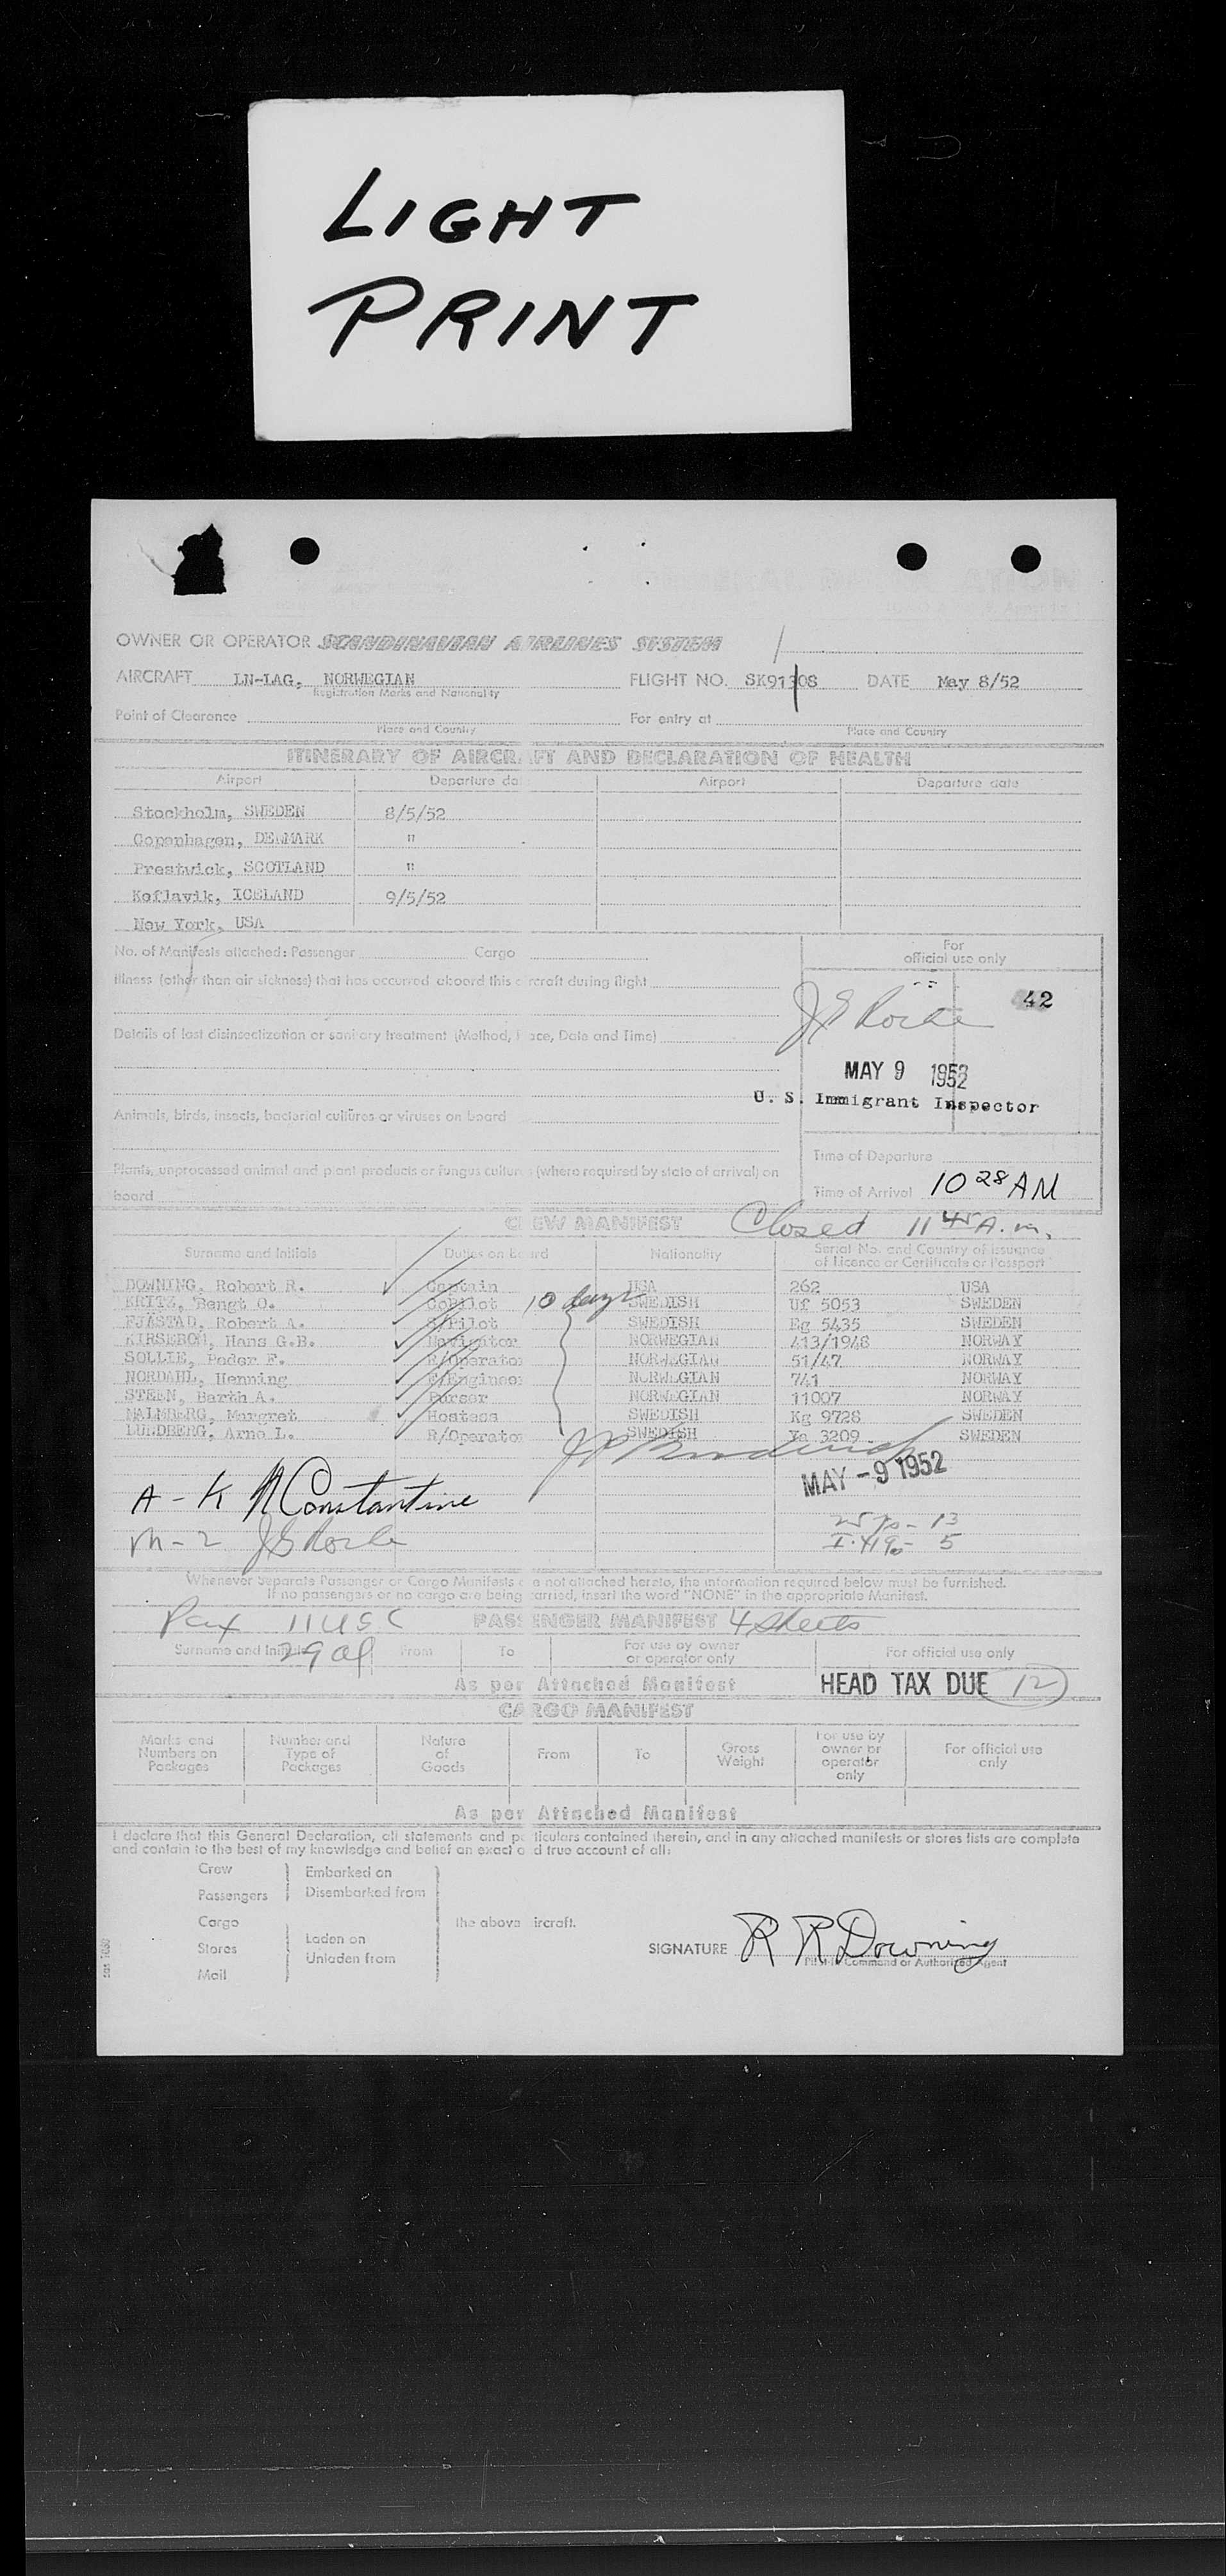 LIGHT
PRINT
OWNER OR OPERATOR SCANDINAVIAN AIRLINES SYSTEM
AIRCRAFT LN-LAG, NORWEGIAN FLIGHT NO. SK91308 DATE May 8/52
Registration Marks and Nationality
Point of Clearance For entry at
Place and Country Place and Country
ITINERARY OF AIRCRAFT AND DECLARATION OF HEALTH
Airport Departure da Airport Departure date
Stockholm, SWEDEN 8/5/52
Copenhagen, DENMARK "
Prestwick, SCOTLAND "
Keflavik, ICELAND 9/5/52
New York, USA
No. of Manifests attached: Passenger Cargo
For
official use only
Illness (other than air sickness) that has occurred aboard this rcraft during flight
42
Details of last disinsectization or sanitary treatment (Method, ace, Date and Time)
MAY 9 1952
U. S. Immigrant Inspector
Animals, birds, insects, bacterial cultures or viruses on board
Time of Departure
Plants, unprocessed animal and plant products or fungus cultur (where required by state of arrival) on
board
Time of Arrival 10 28 AM
CREW MANIFEST Closed 11 45 A.m.
Surname and Initials Duties on Board Nationality Serial No. and Country of issuance
of Licence or Certificate or Passport
DOWNING, Robert R. Captain USA 262 USA
KRITZ, Bengt O. CoPilot 10 days SWEDISH Uf 5053 SWEDEN
FJASTAD, Robert A. S/Pilot SWEDISH Eg 5435 SWEDEN
KIRSEBOM, Hans G.B. Navigator NORWEGIAN 413/1948 NORWAY
SOLLIE, Peder F. R/Operato NORWEGIAN 51/47 NORWAY
NORDAHL, Henning F/Enginee NORWEGIAN 741 NORWAY
STEEN, Barth A. Purser NORWEGIAN 11007 NORWAY
MALMBERG, Margret Hostess SWEDISH Kg 9728 SWEDEN
LUNDBERG, Arne L. R/Operato SWEDISH Ya 3209 SWEDEN
MAY - 9 1952
A - K N Constantine
M - 2
Whenever Separate Passenger or Cargo Manifests a e not attached hereto, the information required below must be furnished.
If no passengers or no cargo are being carried, insert the word "NONE" in the appropriate Manifest.
Pax 11 USC PASSENGER MANIFEST 4 sheets
Surname and Initials 29 al From To For use by owner
or operator only For official use only
As per Attached Manifest HEAD TAX DUE 12
CARGO MANIFEST
Marks and
Numbers on
Packages Number and
Type of
Packages Nature
of
Goods From To Gross
Weight For use by
owner or
operator
only For official use
only
As per Attached Manifest
I declare that this General Declaration, all statements and pa ticulars contained therein, and in any attached manifests or stores lists are complete
and contain to the best of my knowledge and belief an exact a d true account of all:
Crew Embarked on
Passengers Disembarked from
Cargo the above ircraft.
Stores Laden on
Unladen from
Mail
SIGNATURE R R Downing
Pilot in Command or Authorized Agent